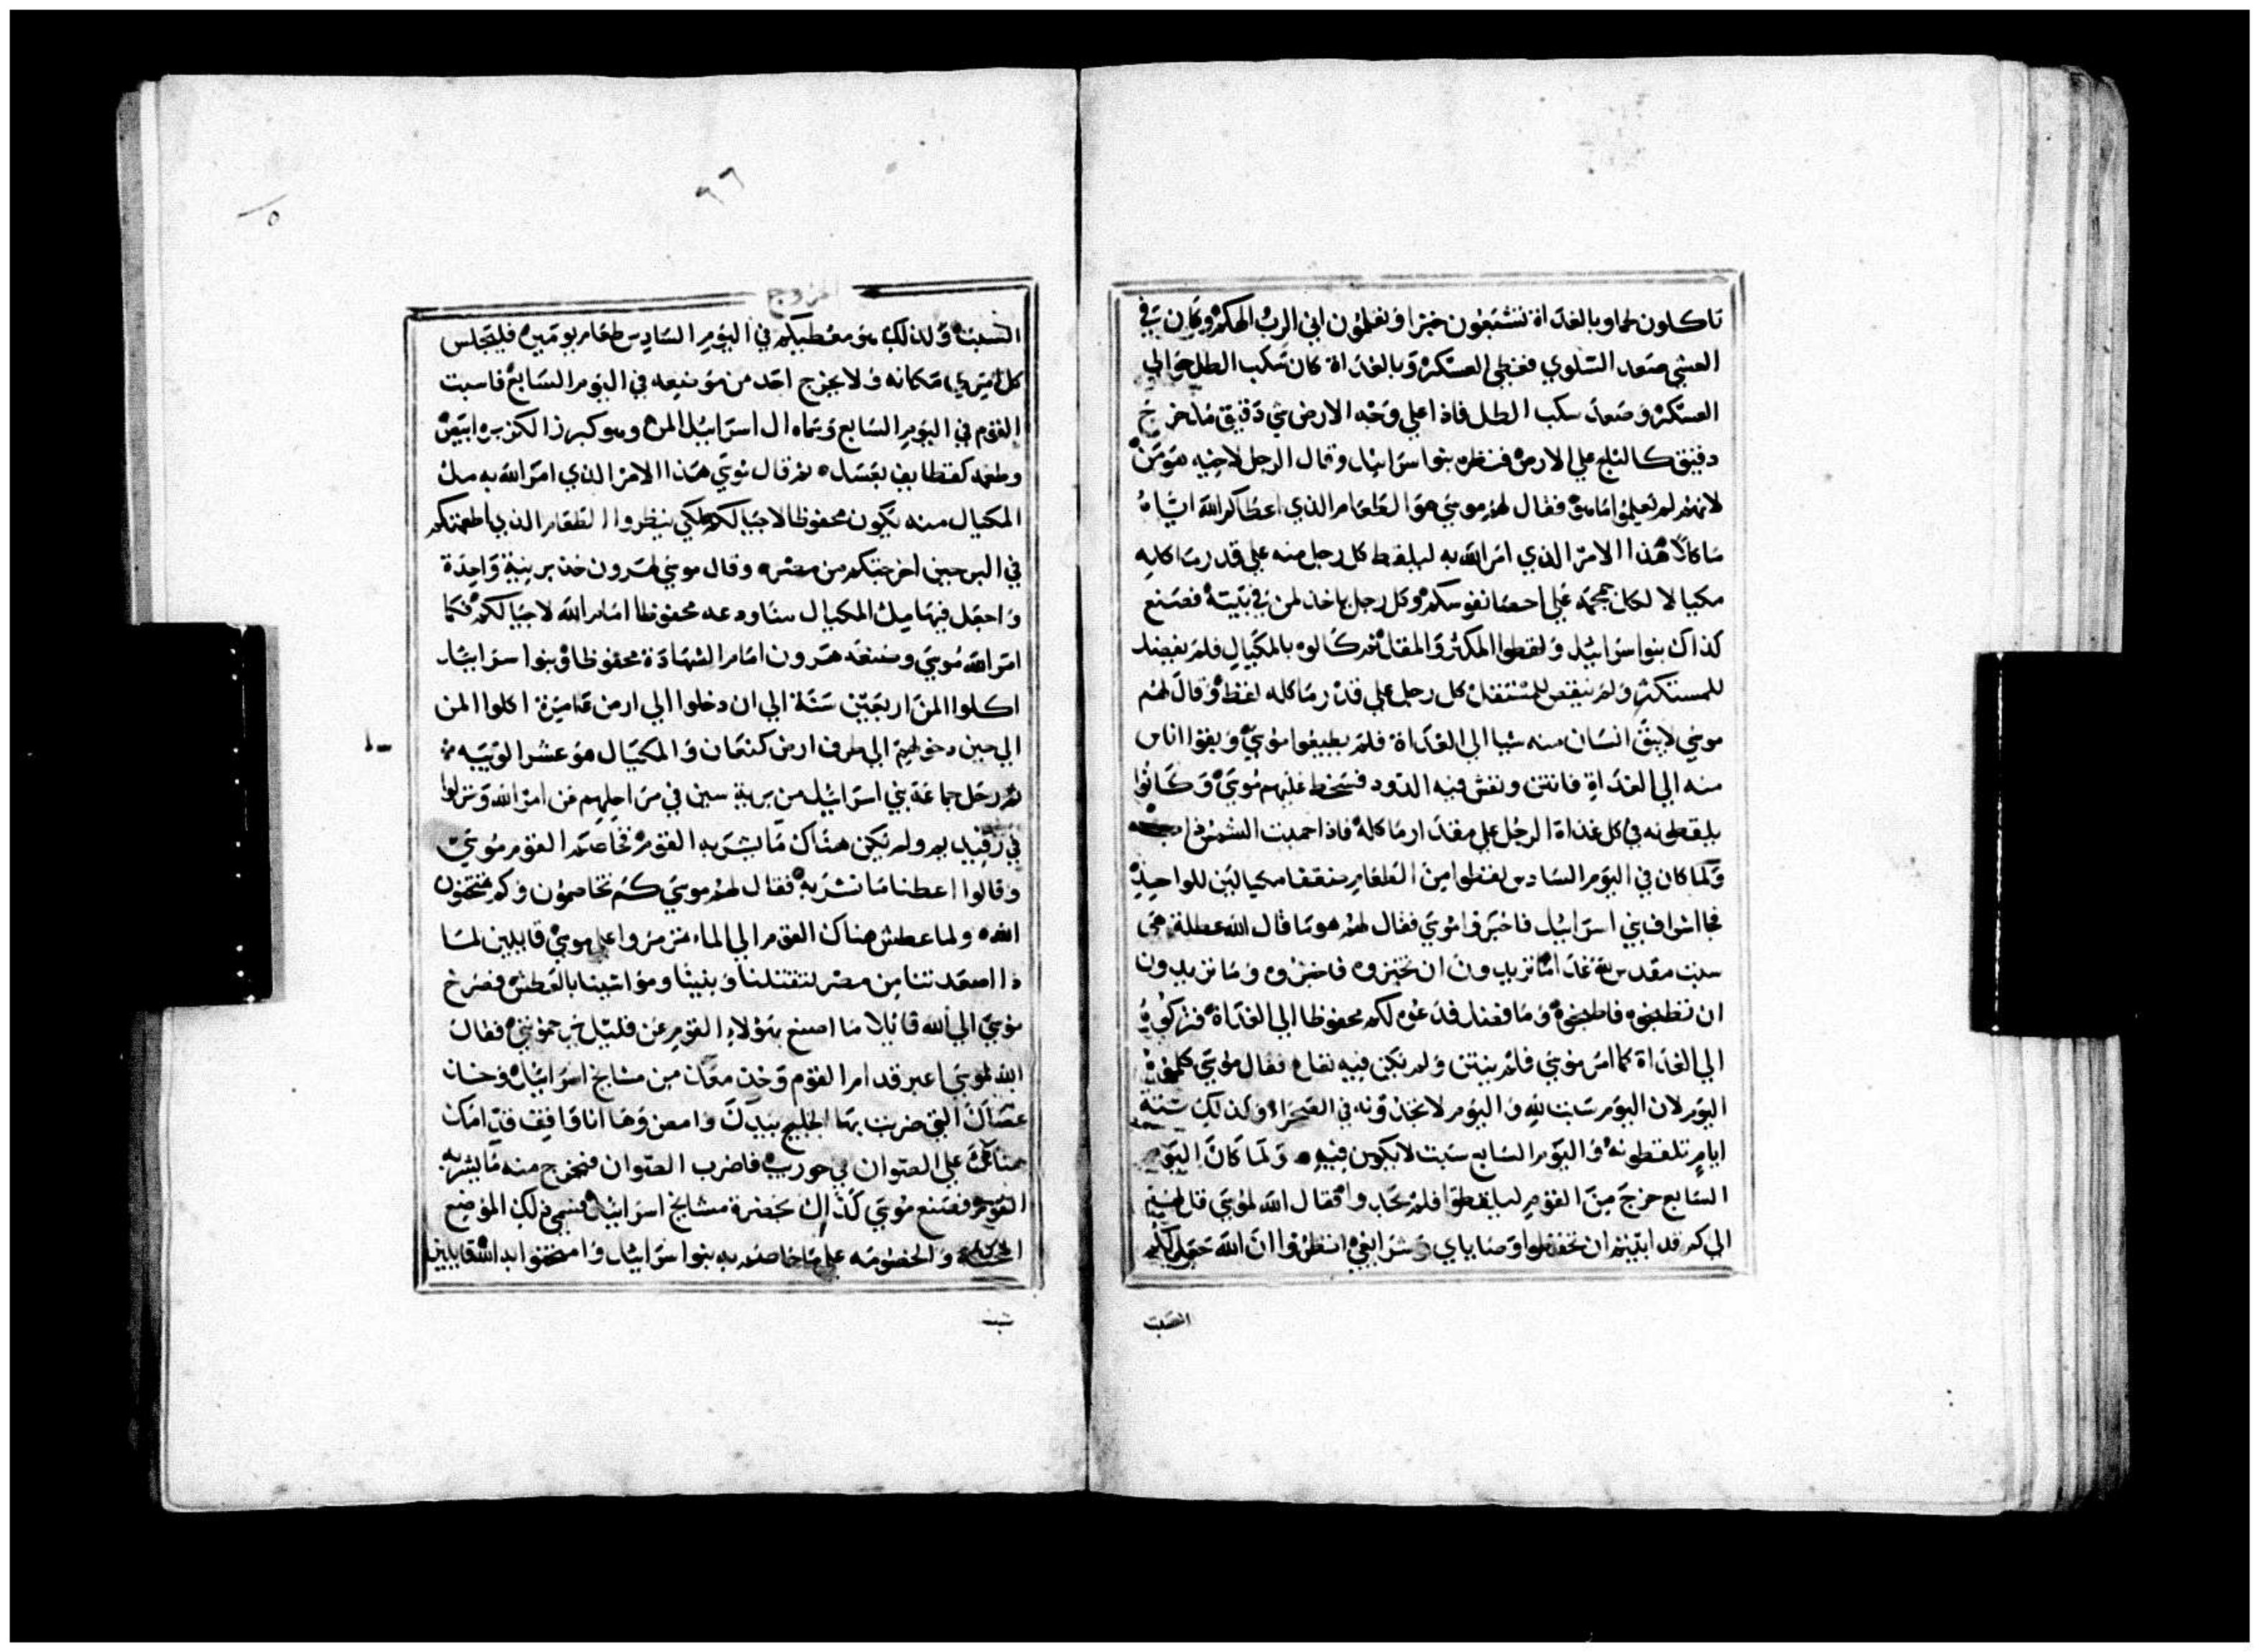 تاكلون لحما وبالغداة تشبعون خبزا وتعلمون اني الرب الهكم وكان في
العشي صعد السلوي فغطي العسكر وبالغداة كان سكب الطل حوالي
العسكر وصعد سكب الطل فاذا علي وجه الارض شي دقيق مدحرج
دقيق كالثلج علي الارض فنظره بنوا اسراييل وقال الرجل لاخيه هو من
لانهم لم يعلموا ما هو فقال لهم موسي هو الطعام الذي اعطاكم الله اياه
ماكلا هذا الامر الذي امر الله به ليلقط كل رجل منه علي قدر ماكله
مكيالا لكل جمجمه علي احصا نفوسكم وكل رجل ياخذ لمن في بيته فصنع
كذاك بنوا اسراييل ولقطوا المكثر والمقل ثم كالوه بالمكيال فلم يفضل
للمستكثر ولم ينقص للمستقل كل رجل علي قدر ماكله لقط وقال لهم
موسي لا يبق انسان منه شيا الي الغداة فلم يطيعوا موسي وبقوا اناس
منه الي الغداة فانتن ونغش فيه الدود فسخط عليهم موسي وكانوا
يلقطونه في كل غداة الرجل علي مقدار ماكله فاذا حميت الشمس ذاب
ولما كان في اليوم السادس لقطوا من الطعام ضعفا مكيالين للواحد
فجا اشراف بني اسراييل فاخبروا موسي فقال لهم هو ما قال الله عطلة هي
سبت مقدس لله غدا ما تريدون ان تخبزوه فاخبزوه وما تريدون
ان تطبخوه فاطبخوه وما فضل فدعوه لكم محفوظا الي الغداة فتركوه
الي الغداة كما امر موسي فلم ينتن ولم يكن فيه نقاع فقال موسي كلوه
اليوم لان اليوم سبت لله واليوم لا تجدونه في الصحراء وكذلك ستة
ايام تلقطونه واليوم السابع سبت لا يكون فيه ولما كان اليوم
السابع خرج من القوم ليلقطوا فلم يجدوا فقال الله لموسي قل لهم
الي كم قد ابيتم ان تحفظوا وصاياي وشرايعي انظروا ان الله جعل لكم
السبت
الخروج
السبت ولذلك هو معطيكم في اليوم السادس طعام يومين فليجلس
كل امري مكانه ولا يخرج احد من موضعه في اليوم السابع فاسبت
القوم في اليوم السابع وسماه ال اسراييل المن وهو كبزر الكزبره ابيض
وطعمه كقطايف بعسل ثم قال موسي هذا الامر الذي امر الله به مل
المكيال منه يكون محفوظا لاجيالكم لكي ينظروا الطعام الذي اطعمتكم
في البر حين اخرجتكم من مصر وقال موسي لهرون خذ برنية واحدة
واجعل فيها مل المكيال منا ودعه محفوظا امام الله لاجيالكم فكما
امر الله موسي وضعه هرون امام الشهادة محفوظا وبنوا اسراييل
اكلوا المن اربعين سنة الي ان دخلوا الي ارض عامرة اكلوا المن
الي حين دخولهم الي طرف ارض كنعان والمكيال هو عشر الويبه
ثم رحل جماعة بني اسراييل من برية سين في مراحلهم عن امر الله ونزلوا
في رفيديم ولم يكن هناك ما يشربه القوم فخاصم القوم موسي
وقالوا اعطنا ما نشربه فقال لهم موسي كم تخاصموني وكم تمتحنون
الله ولما عطش هناك القوم الي الماء تمرمروا علي موسي قايلين لما
ذا اصعدتنا من مصر لتقتلنا وبنينا ومواشينا بالعطش فصرخ
موسي الي الله قايلا ما اصنع بهولاء القوم عن قليل يرجموني فقال
الله لموسي اعبر قدام القوم وخذ معك من مشايخ اسراييل وخذ
عصاك التي ضربت بها الخليج بيدك وامض وها انا واقف قدامك
هناك علي الصوان في حوريب فاضرب الصوان فيخرج منه ما يشربه
القوم فصنع موسي كذاك بحضرة مشايخ اسراييل فسمي ذلك الموضع
المحنة والخصومه علي ما خاصمه به بنوا اسراييل وامتحنوا به الله قايلين